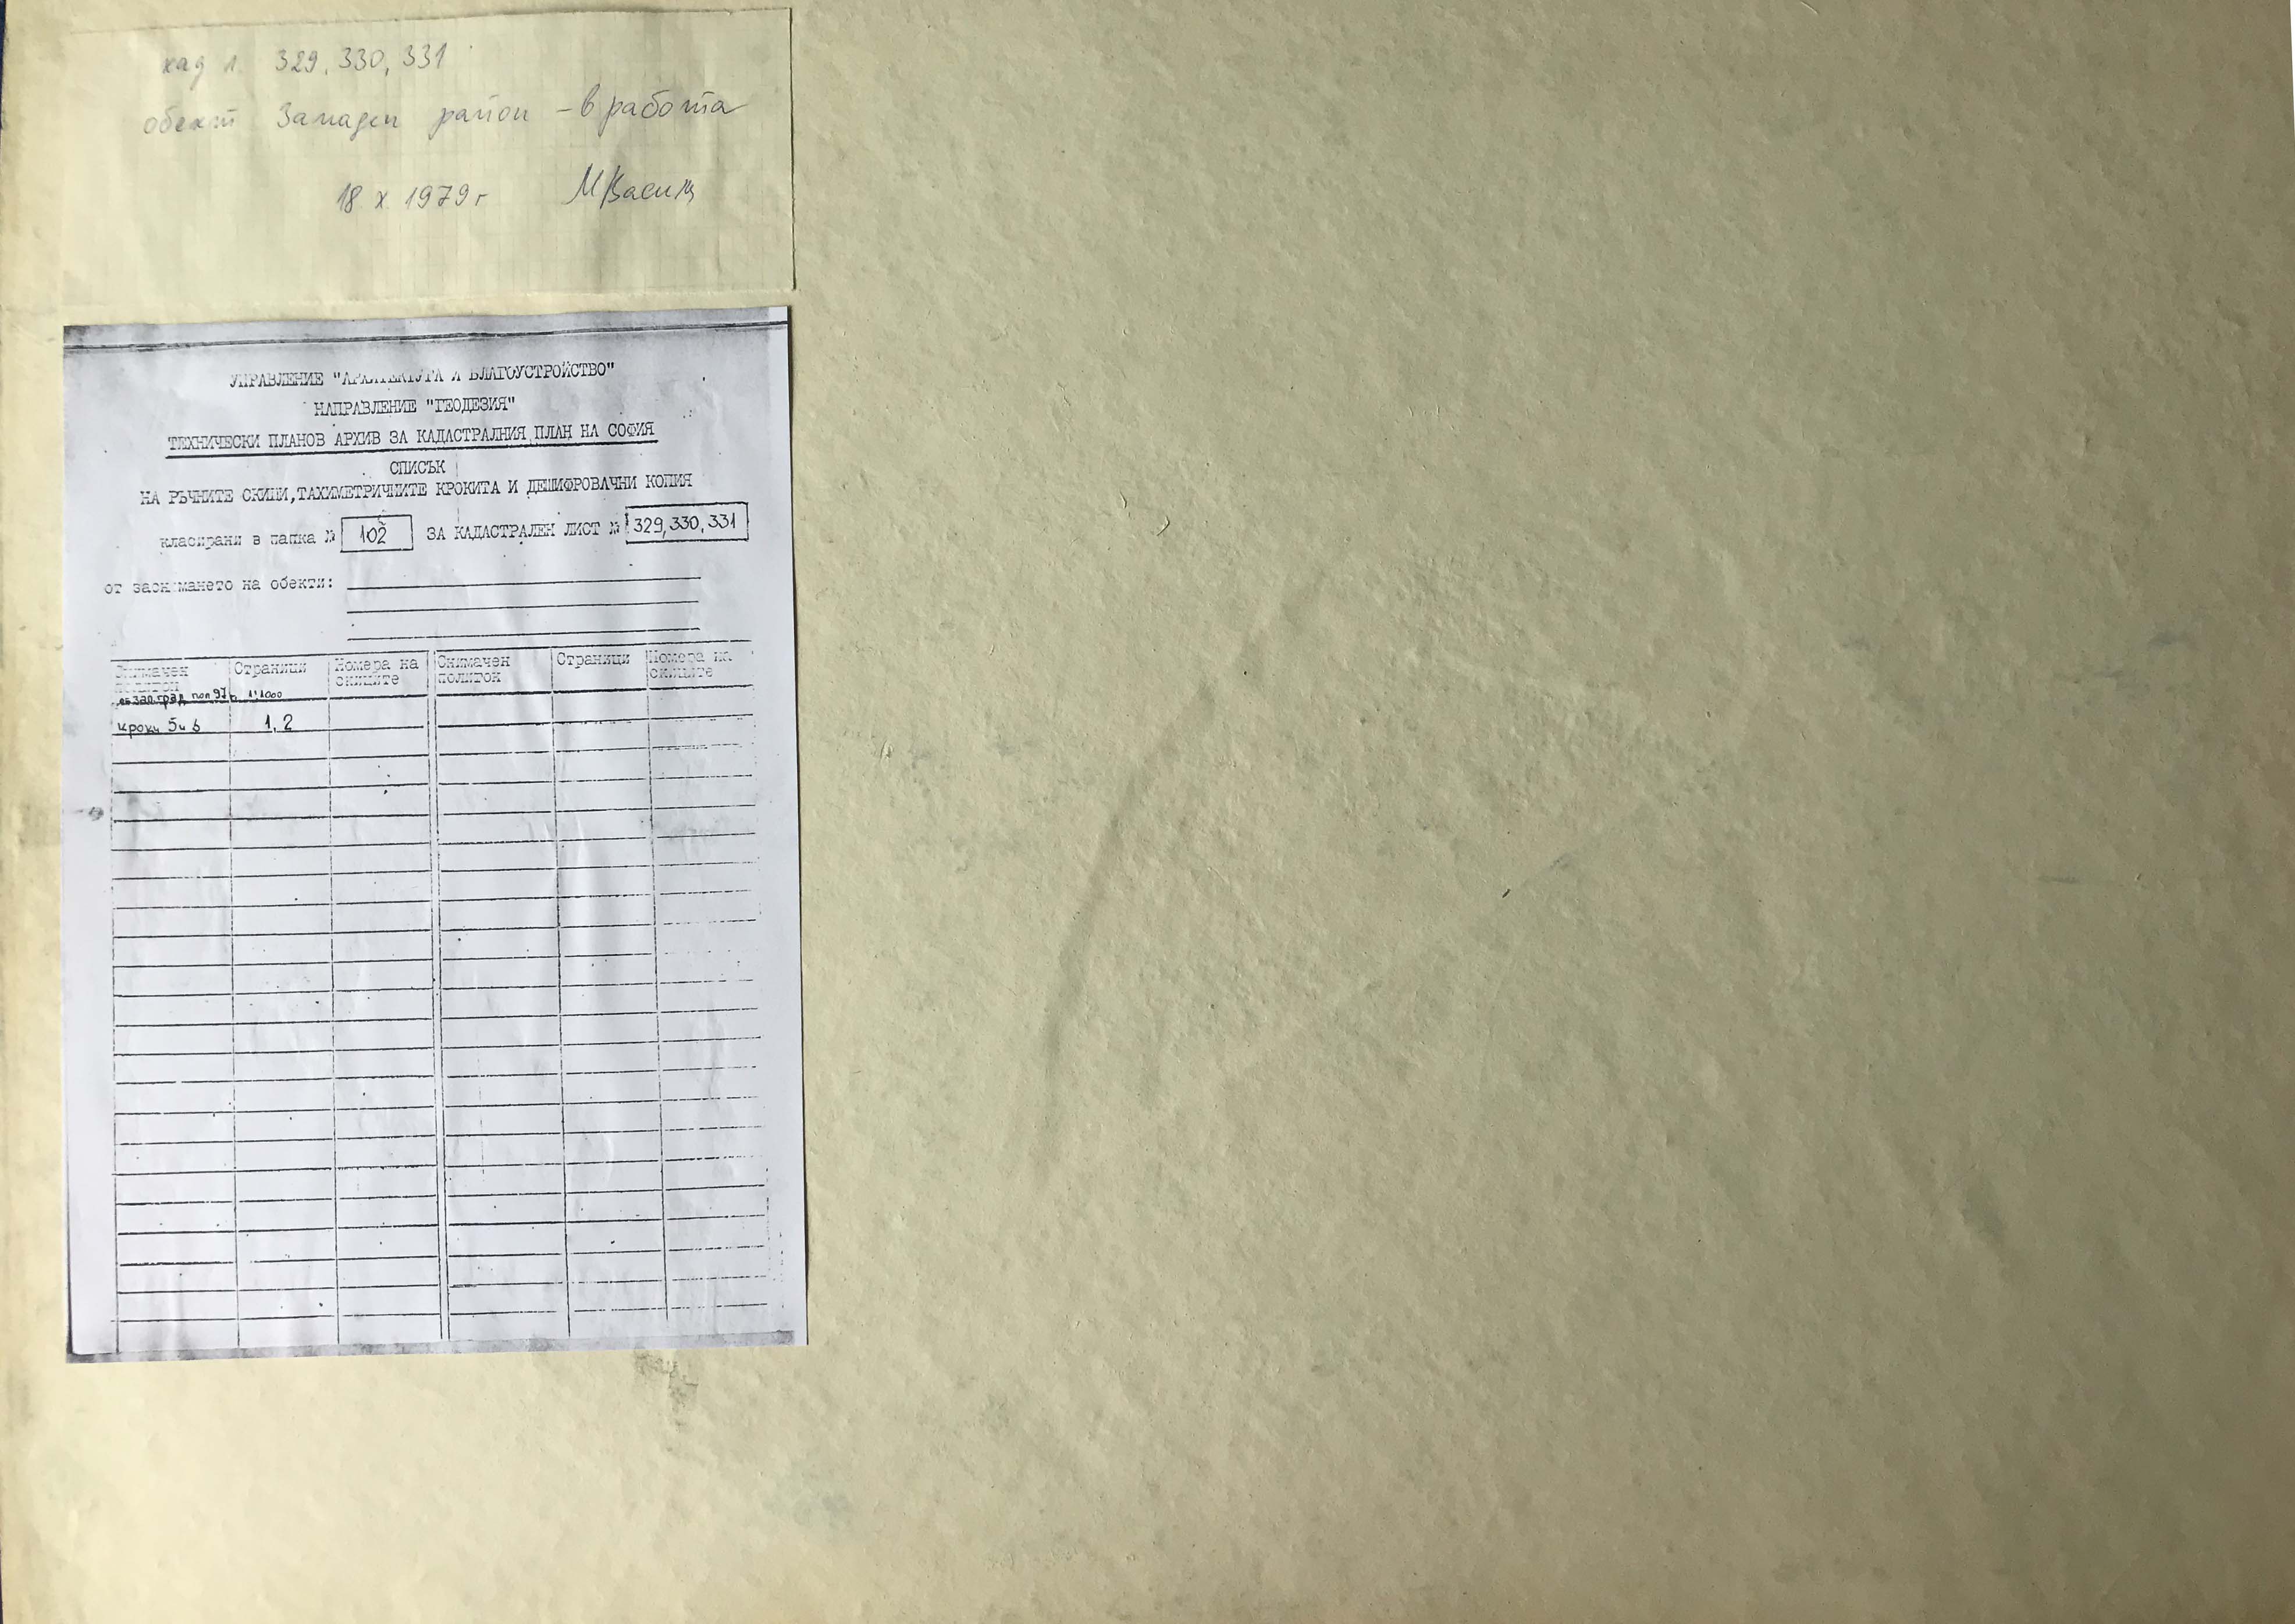 кад л. 329, 330, 331
обект Западен район - в работа
18 X 1979 г
УПРАВЛЕНИЕ "АРХИТЕКТУРА И БЛАГОУСТРОЙСТВО"
НАПРАВЛЕНИЕ "ГЕОДЕЗИЯ"
ТЕХНИЧЕСКИ ПЛАНОВ АРХИВ ЗА КАДАСТРАЛНИЯ ПЛАН НА СОФИЯ
СПИСЪК
НА РЪЧНИТЕ СКИЦИ, ТАХИМЕТРИЧНИТЕ КРОКИТА И ДЕШИФРОВАЧНИ КОПИЯ
класирани в папка № 102 ЗА КАДАСТРАЛЕН ЛИСТ № 329, 330, 331
от заснимането на обекти:
Снимачен полигон Страници Номера на скиците Снимачен полигон Страници Номера на скиците
зап.град пол 97 1:1000
кроки 5 и 6 1, 2